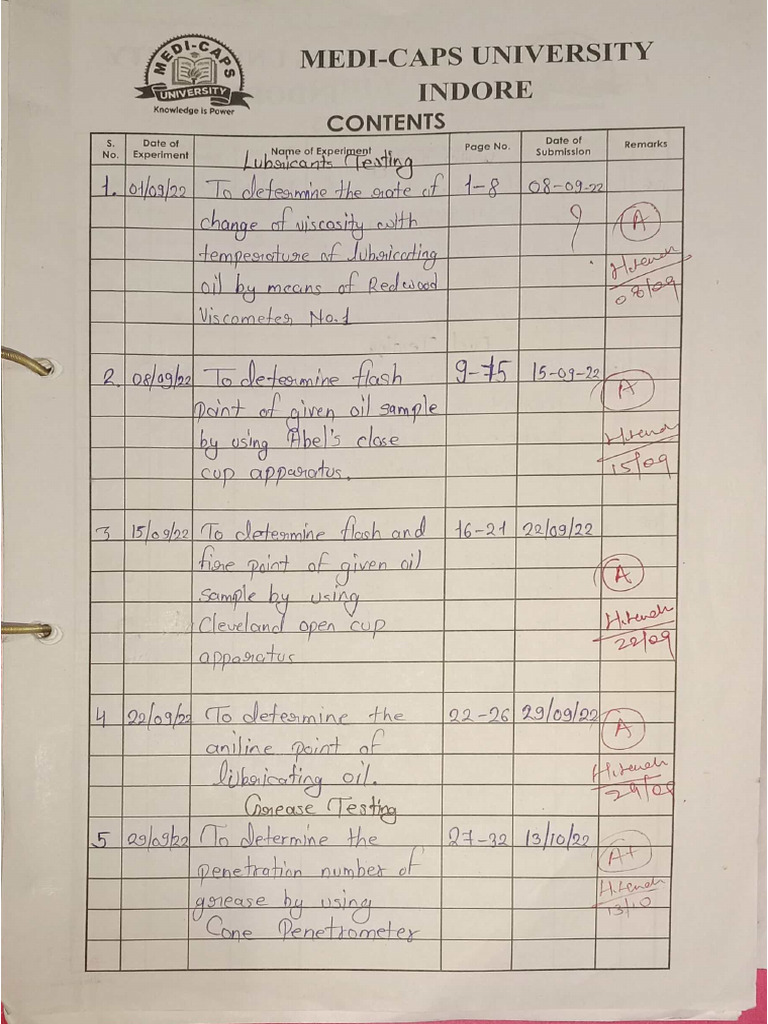 MEDI-CAPS
UNIVERSITY
Knowledge is Power
MEDI-CAPS UNIVERSITY
INDORE
CONTENTS
S. No. Date of Experiment Name of Experiment Page No. Date of Submission Remarks
Lubricants Testing
1. 01/09/22 To determine the rate of 1-8 08-09-22
change of viscosity with A
temperature of lubricating Hitendr
oil by means of Redwood 08/09
Viscometer No.1
2. 08/09/22 To determine flash 9-15 15-09-22 A
point of given oil sample
by using Abel's close Hitendr
cup apparatus. 15/09
3 15/09/22 To determine flash and 16-21 22/09/22
fire point of given oil A
sample by using
Cleveland open cup Hitendr
apparatus 22/09
4 22/09/22 To determine the 22-26 29/09/22 A
aniline point of
lubricating oil. Hitendr
Grease Testing 29/09
5 29/09/22 To determine the 27-32 13/10/22 A+
penetration number of
grease by using Hitendr
Cone Penetrometer 13/10